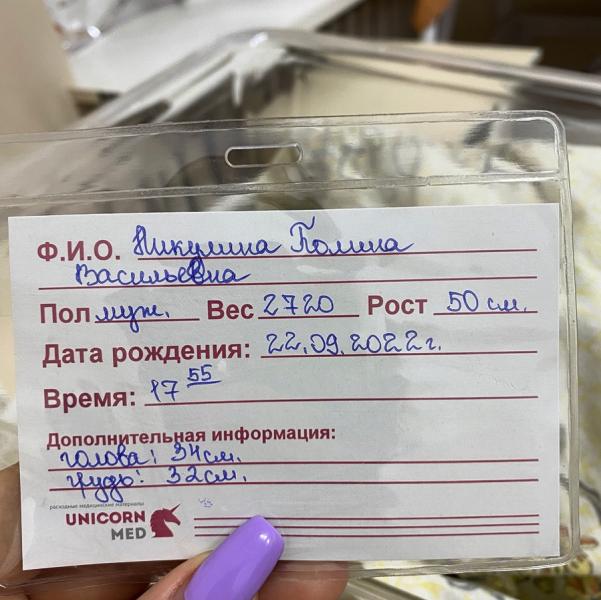 Ф.И.О. Никулина Полина
Васильевна
Пол муж. Вес 2720 Рост 50 см.
Дата рождения: 22.09.2022г.
Время: 17 55
Дополнительная информация:
голова: 34см.
грудь: 32см.
расходные медицинские материалы
UNICORN
MED